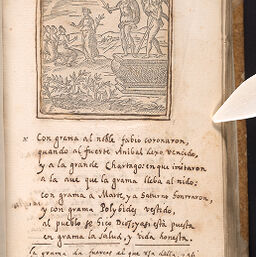 Con grama al noble fabio coronaron,
quando al fuerte Anibal dexo vencido,
y a la grande Chartago: en que imitaron
a la aue que la grama lleba al nido:
con grama a Marte, y a Saturno honraron,
y con grama Polybides vestido,
al pueblo se hiço Dios, y assi está puesta
en grama la salud, y vida honesta.
la grama da fuerças al que usa della